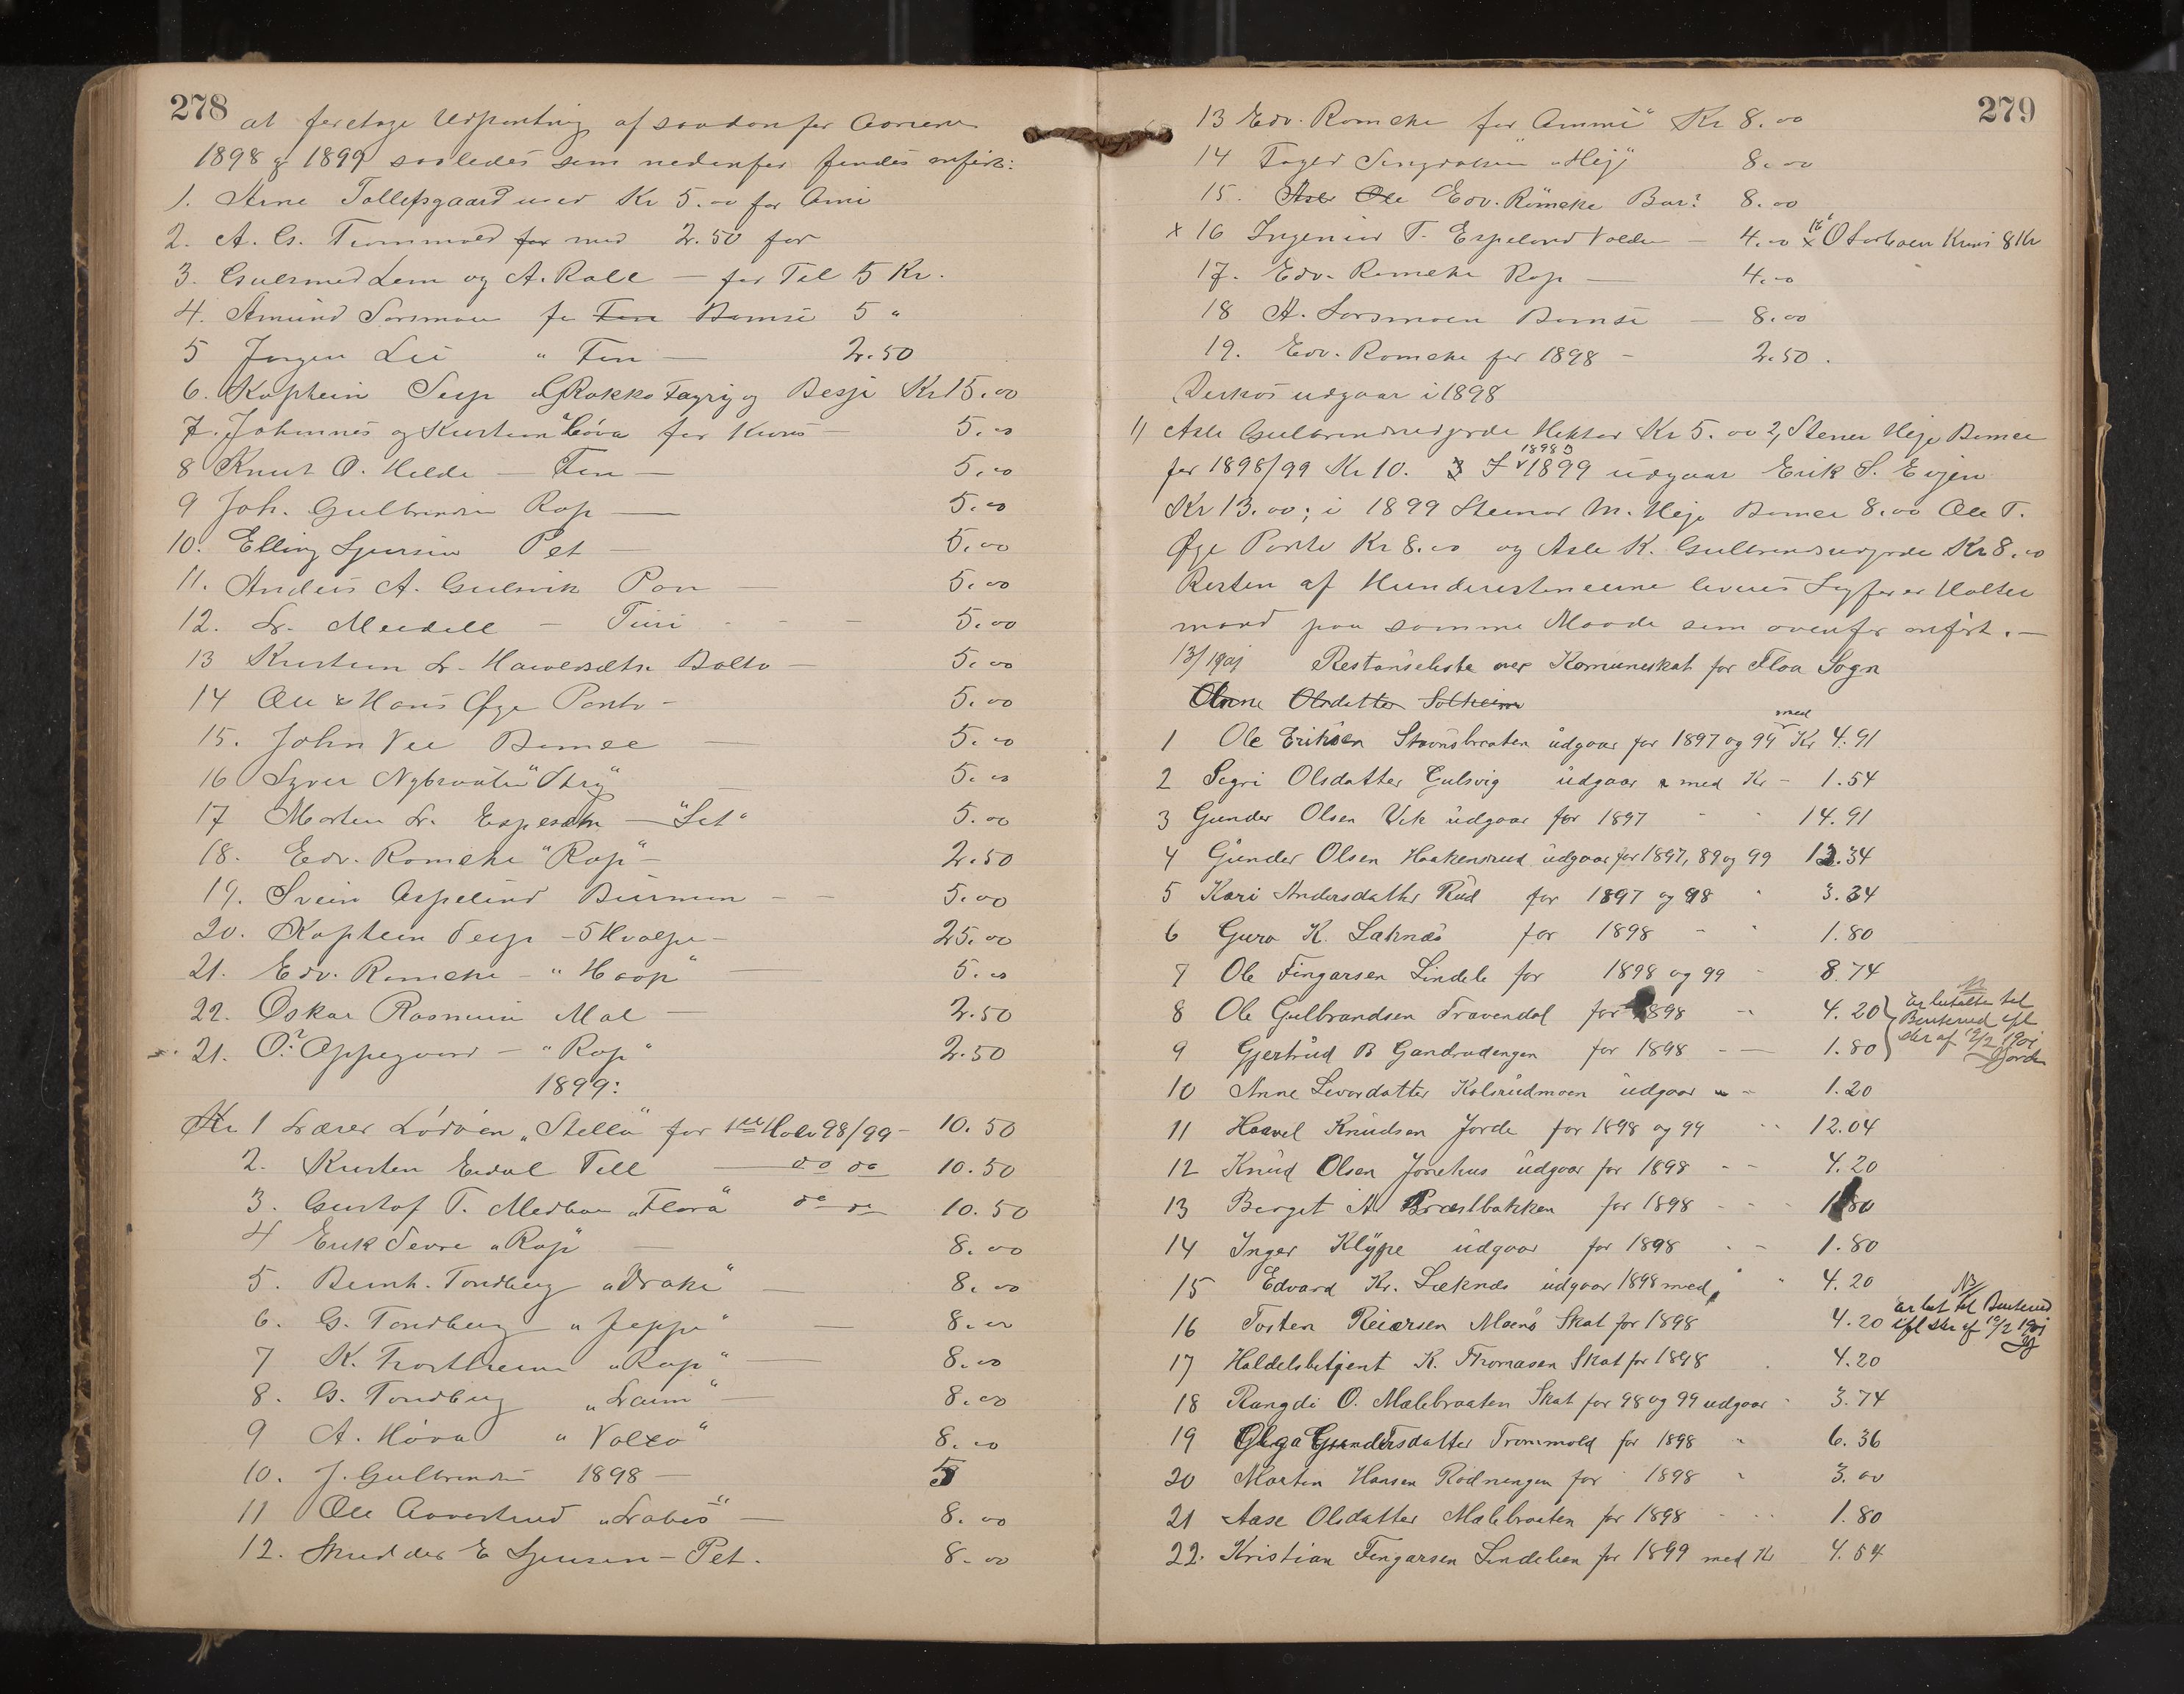 278
at foretage Udpantning af saadan for Aarene
1898 & 1899 saaledes som nedenfor findes anfört:
1. Arne Tollefsgaard med Kr 5.00 for Ami
2. A. G. Trommald for med 2.50 for
3. Gulsmed Lem og A. Rall — for Tel 5 Kr.
4. Amund Sorsmoen for Fin Bamse 5 "
5 Jorgen Lii " Fin — 2.50
6. Kaptein Sejp Rakko Fagrig og Besje Kr 15.00
7. Johannes og Kristian Höva for Kvus — 5.00
8 Knut O. Helde — Fin — 5.00
9 Joh. Gulbrandsen Rap — 5.00
10. Elling Sjursen Pet — 5.00
11. Anders A. Gulsvik Pan — 5.00
12. L. Meidell — Turi - - — 5.00
13 Kristian L. Haversæter Balto — 5.00
14 Ole & Hans Øye Ponto — 5.00
15. John Vee Bamse — 5.00
16 Syver Nybraaten "Stry" 5.00
17 Morten L. Espesæth — "Set" 5.00
18. Edv. Romcke "Rap" — 2.50
19. Svein Aspelund Burman - - 5.00
20. Kaptein Sejp — 5 Hvalpe — 25.00
21. Edv. Romcke — "Haap" — 5.00
22. Oskar Rasmusen Mal — 2.50
21. O. Oppegaard — "Rap" 2.50
1899:
Kr 1 Lærer Lödöen "Stella" for 1ste Halv 98/99 — 10.50
2. Kristen Eidal Tell — do do 10.50
3. Gustaf T. Medhus "Flora" do do 10.50
4 Erik Sevre "Rap" — 8.00
5. Bernh. Tondberg "Drake" — 8.00
6. G. Tondberg "Jeppe" — 8.00
7 K. Trostheim "Rap" — 8.00
8. G. Tondberg "Laun" — 8.00
9 A. Höva "Valto" 8.00
10. J. Gulbrandsen 1898 — 5
11 Ole Aavestrud "Labes" — 8.00
12. Skredder E Sjursen — Pet. 8.00
279
13 Edv. Romcke for Ammi" Kr 8.00
14 "Hej" 8.00
15. Asle Ole Edv. Römcke Bar? 8.00
x 16 Ingeniör T. Espeland Valde — 4.00 x O Kvus 8 Kr
17. Edv. Romcke Rap — 4.00
18 A. Sorsmoen Bamse — 8.00
19. Edv. Romcke for 1898 — 2.50.
Desuden udgaar i 1898
1) Asle Gulbrandsudjorde Hektor Kr 5.00 2, Stener Heje Bamse
for 1898/99 Kr 10. 3 I 1898 v 1899 udgaar Erik S. Evjen
Kr 13.00; i 1899 Steinar M. Heje Bamse 8.00 Ole T.
Øye Ponto Kr 8.00 og Asle K. Gulbrandsudjorde Kr 8.00
Resten af Hunderestancerne leveres Sagfører Halten
mand paa samme Maade som ovenfor anfört. —
13/1901 Restanseliste over Komuneskat for Flaa Sogn
Anne Olsdatter Solheim
1 Ole Eriksen Stavnsbraaten udgaar for 1897 og 99 med Kr 4.91
2 Segri Olsdatter Gulsvig udgaar med Kr — 1.54
3 Gunder Olsen Vik udgaar for 1897 - - 14.91
4 Gunder Olsen Haakensrud udgaar for 1897, 89 og 99 12.34
5 Kari Andersdatter Rud for 1897 og 98 " 3.34
6 Guro K. Læknæs for 1898 - " 1.80
7 Ole Fingarsen Lindeli for 1898 og 99 - 8.74
8 Ole Gulbrandsen Travendal for 1898 -- 4.20
9 Gjertrud B Gandrudengen for 1898 - — 1.80
NB er betalte til Benterud efl skr af 12/2 1901
10 Anne Levordatter Kolsrudmoen udgaar - 1.20
11 Haavel Knudsen Jorde for 1898 og 99 -- 12.04
12 Knud Olsen Jonehus udgaar for 1898 - - 4.20
13 Berget A Præstbakken for 1898 - - - 1.80
14 Inger Klype udgaar for 1898 - - 1.80
15 Edvard Kr. Læknæs udgaar 1898 med " 4.20
16 Tosten Reiersen Moens Skat for 1898 4.20
NB er bet til Benterud efl skr af 12/2 1901
17 Haldelsbetjent K. Thomasen Skat for 1898 . 4.20
18 Rangdi O. Mælebraaten Skat for 98 og 99 udgaar - 3.74
19 Olga Gundersdatter Trommald for 1898 " 6.36
20 Martin Hansen Rødningen for 1898 " 3.00
21 Aase Olsdatter Mælebraaten for 1898 - -- 1.80
22. Kristian Fingarsen Lindelien for 1899 med Kr 4.54